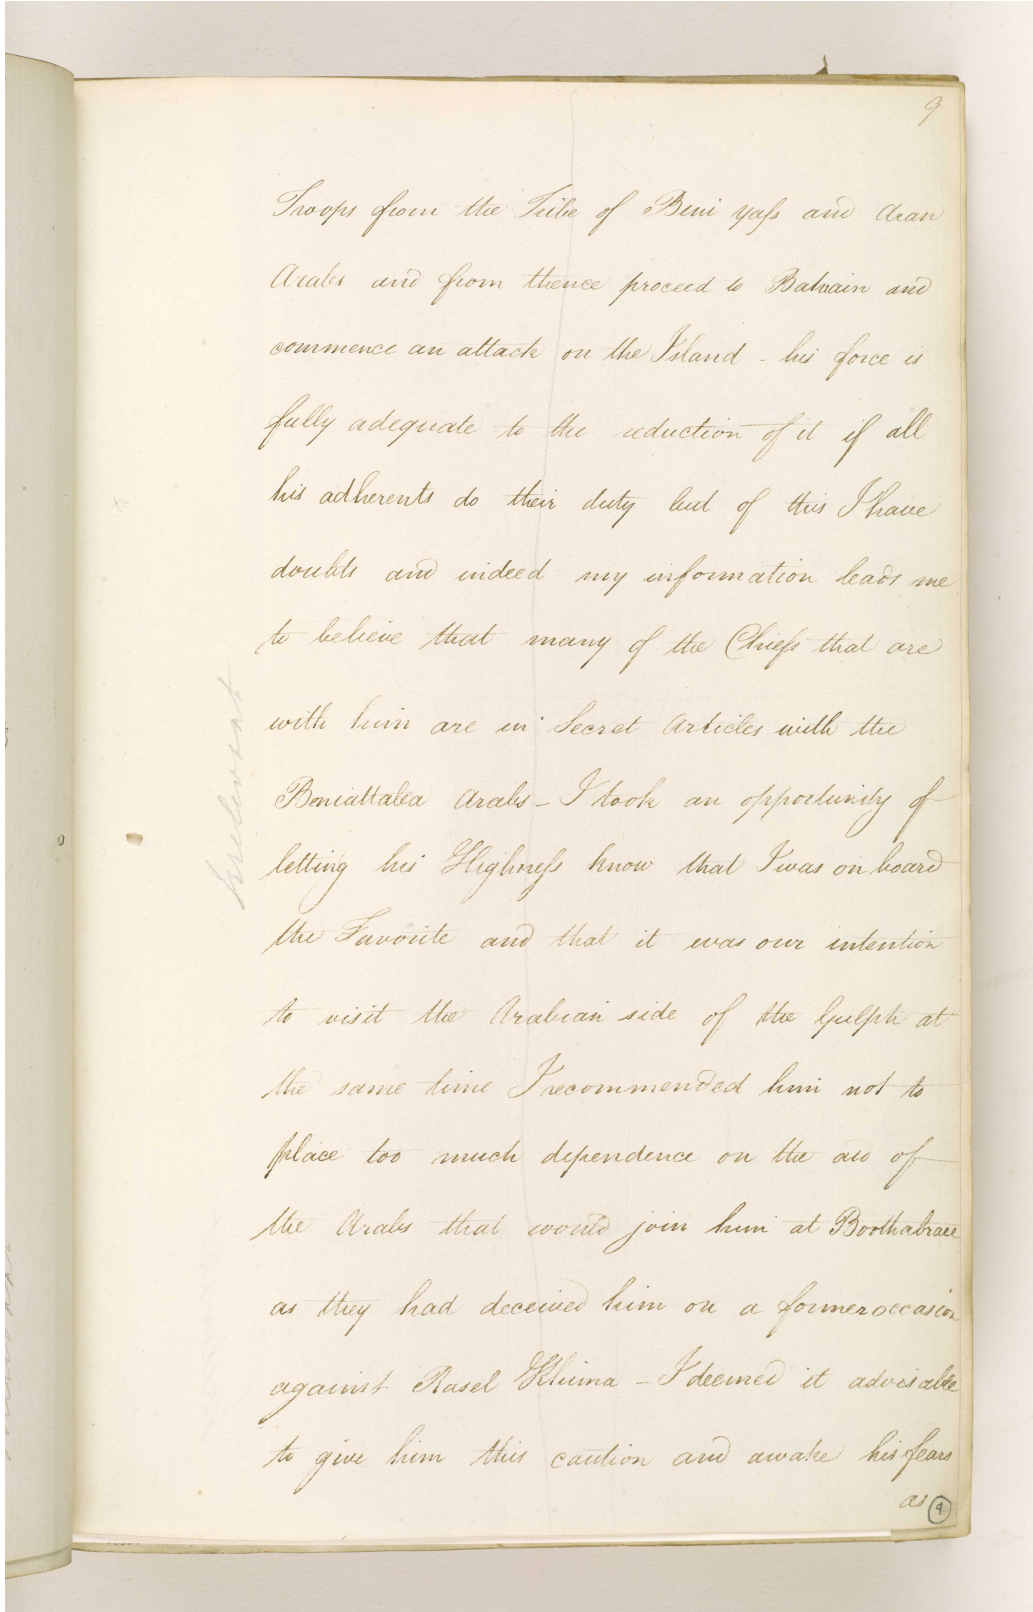 9
Troops from the Tribe of Beni yass and Aran
Arabs and from thence proceed to Bahrain and
commence an attack on the Island - his force is
fully adequate to the reduction of it if all
his adherents do their duty but of this I have
doubts and indeed my information leads me
to believe that many of the Chiefs that are
with him are in Secret Articles with the
Beniattaba Arabs - I took an opportunity of
letting his Highness know that I was on board
the Favorite and that it was our intention
to visit the Arabian side of the Gulph at
the same time I recommended him not to
place too much dependence on the aid of
the Arabs that would join him at
as they had deceived him on a former occasion
against Rasel Khima - I deemed it advisable
to give him this caution and awake his fears
as
9
Irrelevant